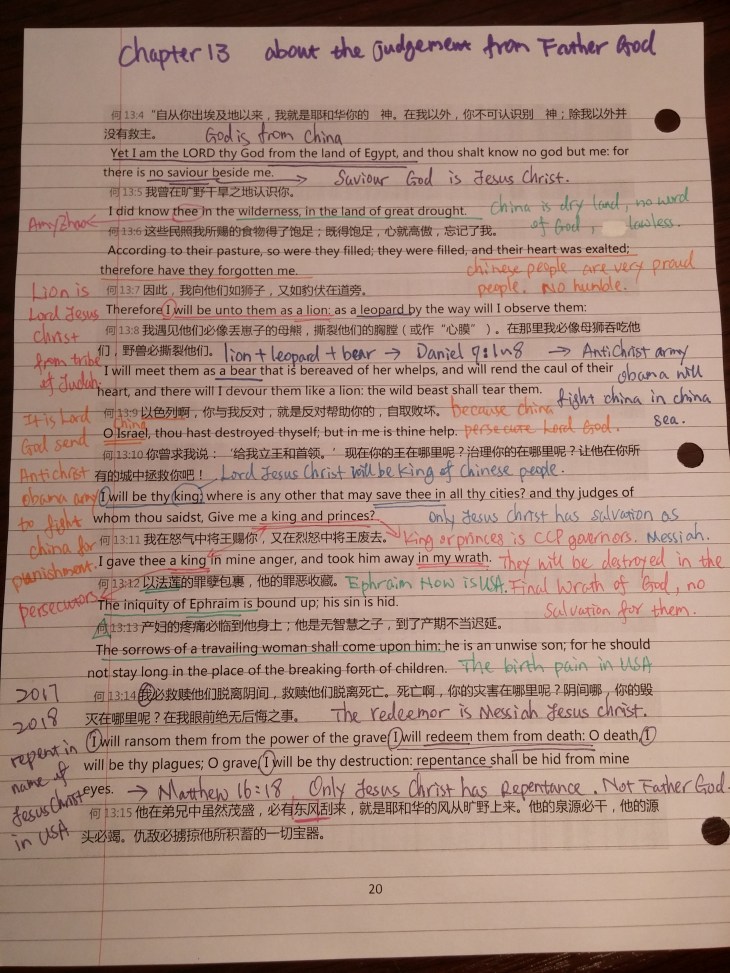 Chapter 13 about the judgement from Father God
何 13:4 “自从你出埃及地以来，我就是耶和华你的 神。在我以外，你不可认识别 神；除我以外并
没有救主。 God is from China
Yet I am the LORD thy God from the land of Egypt, and thou shalt know no god but me: for
there is no saviour beside me. → Saviour God is Jesus Christ.
何 13:5 我曾在旷野干旱之地认识你。
I did know thee in the wilderness, in the land of great drought. China is dry land, no word
Amy Zhao
何 13:6 这些民照我所赐的食物得了饱足；既得饱足，心就高傲，忘记了我。 of God, lawless.
According to their pasture, so were they filled; they were filled, and their heart was exalted;
therefore have they forgotten me. chinese people are very proud
people. No humble.
何 13:7 因此，我向他们如狮子，又如豹伏在道旁。
Therefore I will be unto them as a lion: as a leopard by the way will I observe them:
Lion is
Lord Jesus
Christ
from tribe
of Judah.
何 13:8 我遇见他们必像丢崽子的母熊，撕裂他们的胸膛（或作“心膜”）。在那里我必像母狮吞吃他
们，野兽必撕裂他们。 lion + leopard + bear → Daniel 7:1~8 → AntiChrist army
I will meet them as a bear that is bereaved of her whelps, and will rend the caul of their obama will
heart, and there will I devour them like a lion: the wild beast shall tear them. fight china in china
sea.
何 13:9 以色列啊，你与我反对，就是反对帮助你的，自取败坏。 because china
China
O Israel, thou hast destroyed thyself; but in me is thine help. persecute Lord God.
It is Lord
God send
Antichrist
obama army
to fight
china for
punishment.
persecutors
何 13:10 你曾求我说：‘给我立王和首领。’现在你的王在哪里呢？治理你的在哪里呢？让他在你所
有的城中拯救你吧！ Lord Jesus Christ will be King of Chinese people.
I will be thy king: where is any other that may save thee in all thy cities? and thy judges of
whom thou saidst, Give me a king and princes? only Jesus Christ has salvation as
Messiah.
何 13:11 我在怒气中将王赐你，又在烈怒中将王废去。 King or princes is CCP governors.
I gave thee a king in mine anger, and took him away in my wrath. They will be destroyed in the
Final Wrath of God, no
Salvation for them.
何 13:12 以法莲的罪孽包裹，他的罪恶收藏。 Ephraim Now is USA.
The iniquity of Ephraim is bound up; his sin is hid.
何 13:13 产妇的疼痛必临到他身上；他是无智慧之子，到了产期不当迟延。
The sorrows of a travailing woman shall come upon him: he is an unwise son; for he should
not stay long in the place of the breaking forth of children. The birth pain in USA
何 13:14 我必救赎他们脱离阴间，救赎他们脱离死亡。死亡啊，你的灾害在哪里呢？阴间哪，你的毁
灭在哪里呢？在我眼前绝无后悔之事。 The redeemor is Messiah Jesus christ.
I will ransom them from the power of the grave I will redeem them from death: O death, I
will be thy plagues; O grave, I will be thy destruction: repentance shall be hid from mine
eyes. → Matthew 16:18, Only Jesus Christ has Repentance. Not Father God.
2017
2018
repent in
name of
Jesus Christ
in USA
何 13:15 他在弟兄中虽然茂盛，必有东风刮来，就是耶和华的风从旷野上来。他的泉源必干，他的源
头必竭。仇敌必掳掠他所积蓄的一切宝器。
20